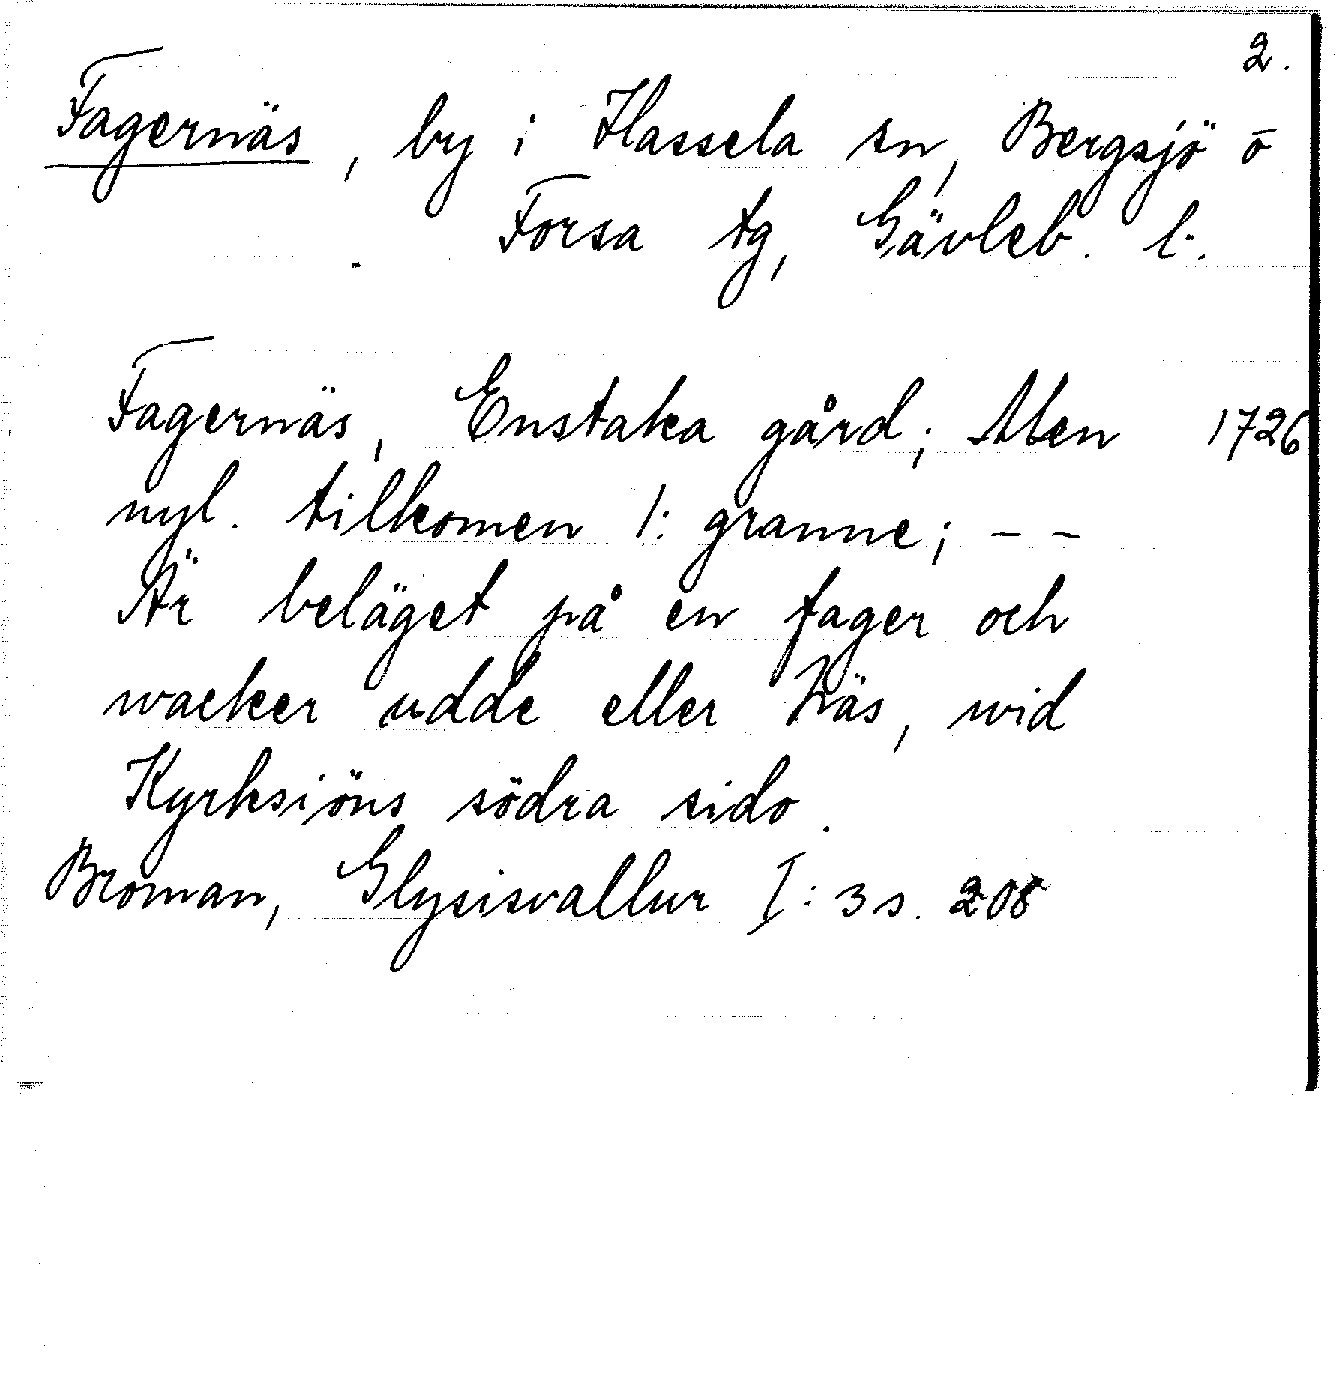 2.
Fagernäs, by i Hassela sn, Bergsjö o
Forsa tg, Gävleb. l.
Fagernäs, Enstaka gård; Men 1726
nyl. tilkomen 1: granne; - -
Är beläget på en fager och
wacker udde eller Näs, wid
Kyrksiöns södra sido.
Broman, Glysisvallur I: 3 s. 208